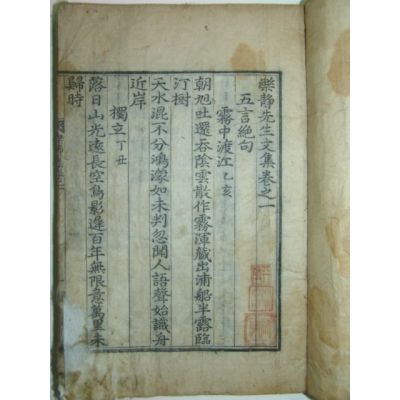 樂靜先生文集卷之一
五言絶句
霧中渡江 乙亥
朝旭吐還呑陰雲散作霧渾蔵出浦船半露臨
汀樹
天水混不分鴻濛如未判忽聞人語聲始識舟
近岸
獨立 丁丑
落日山光遠長空鳥影遲百年無限意萬里未
歸時